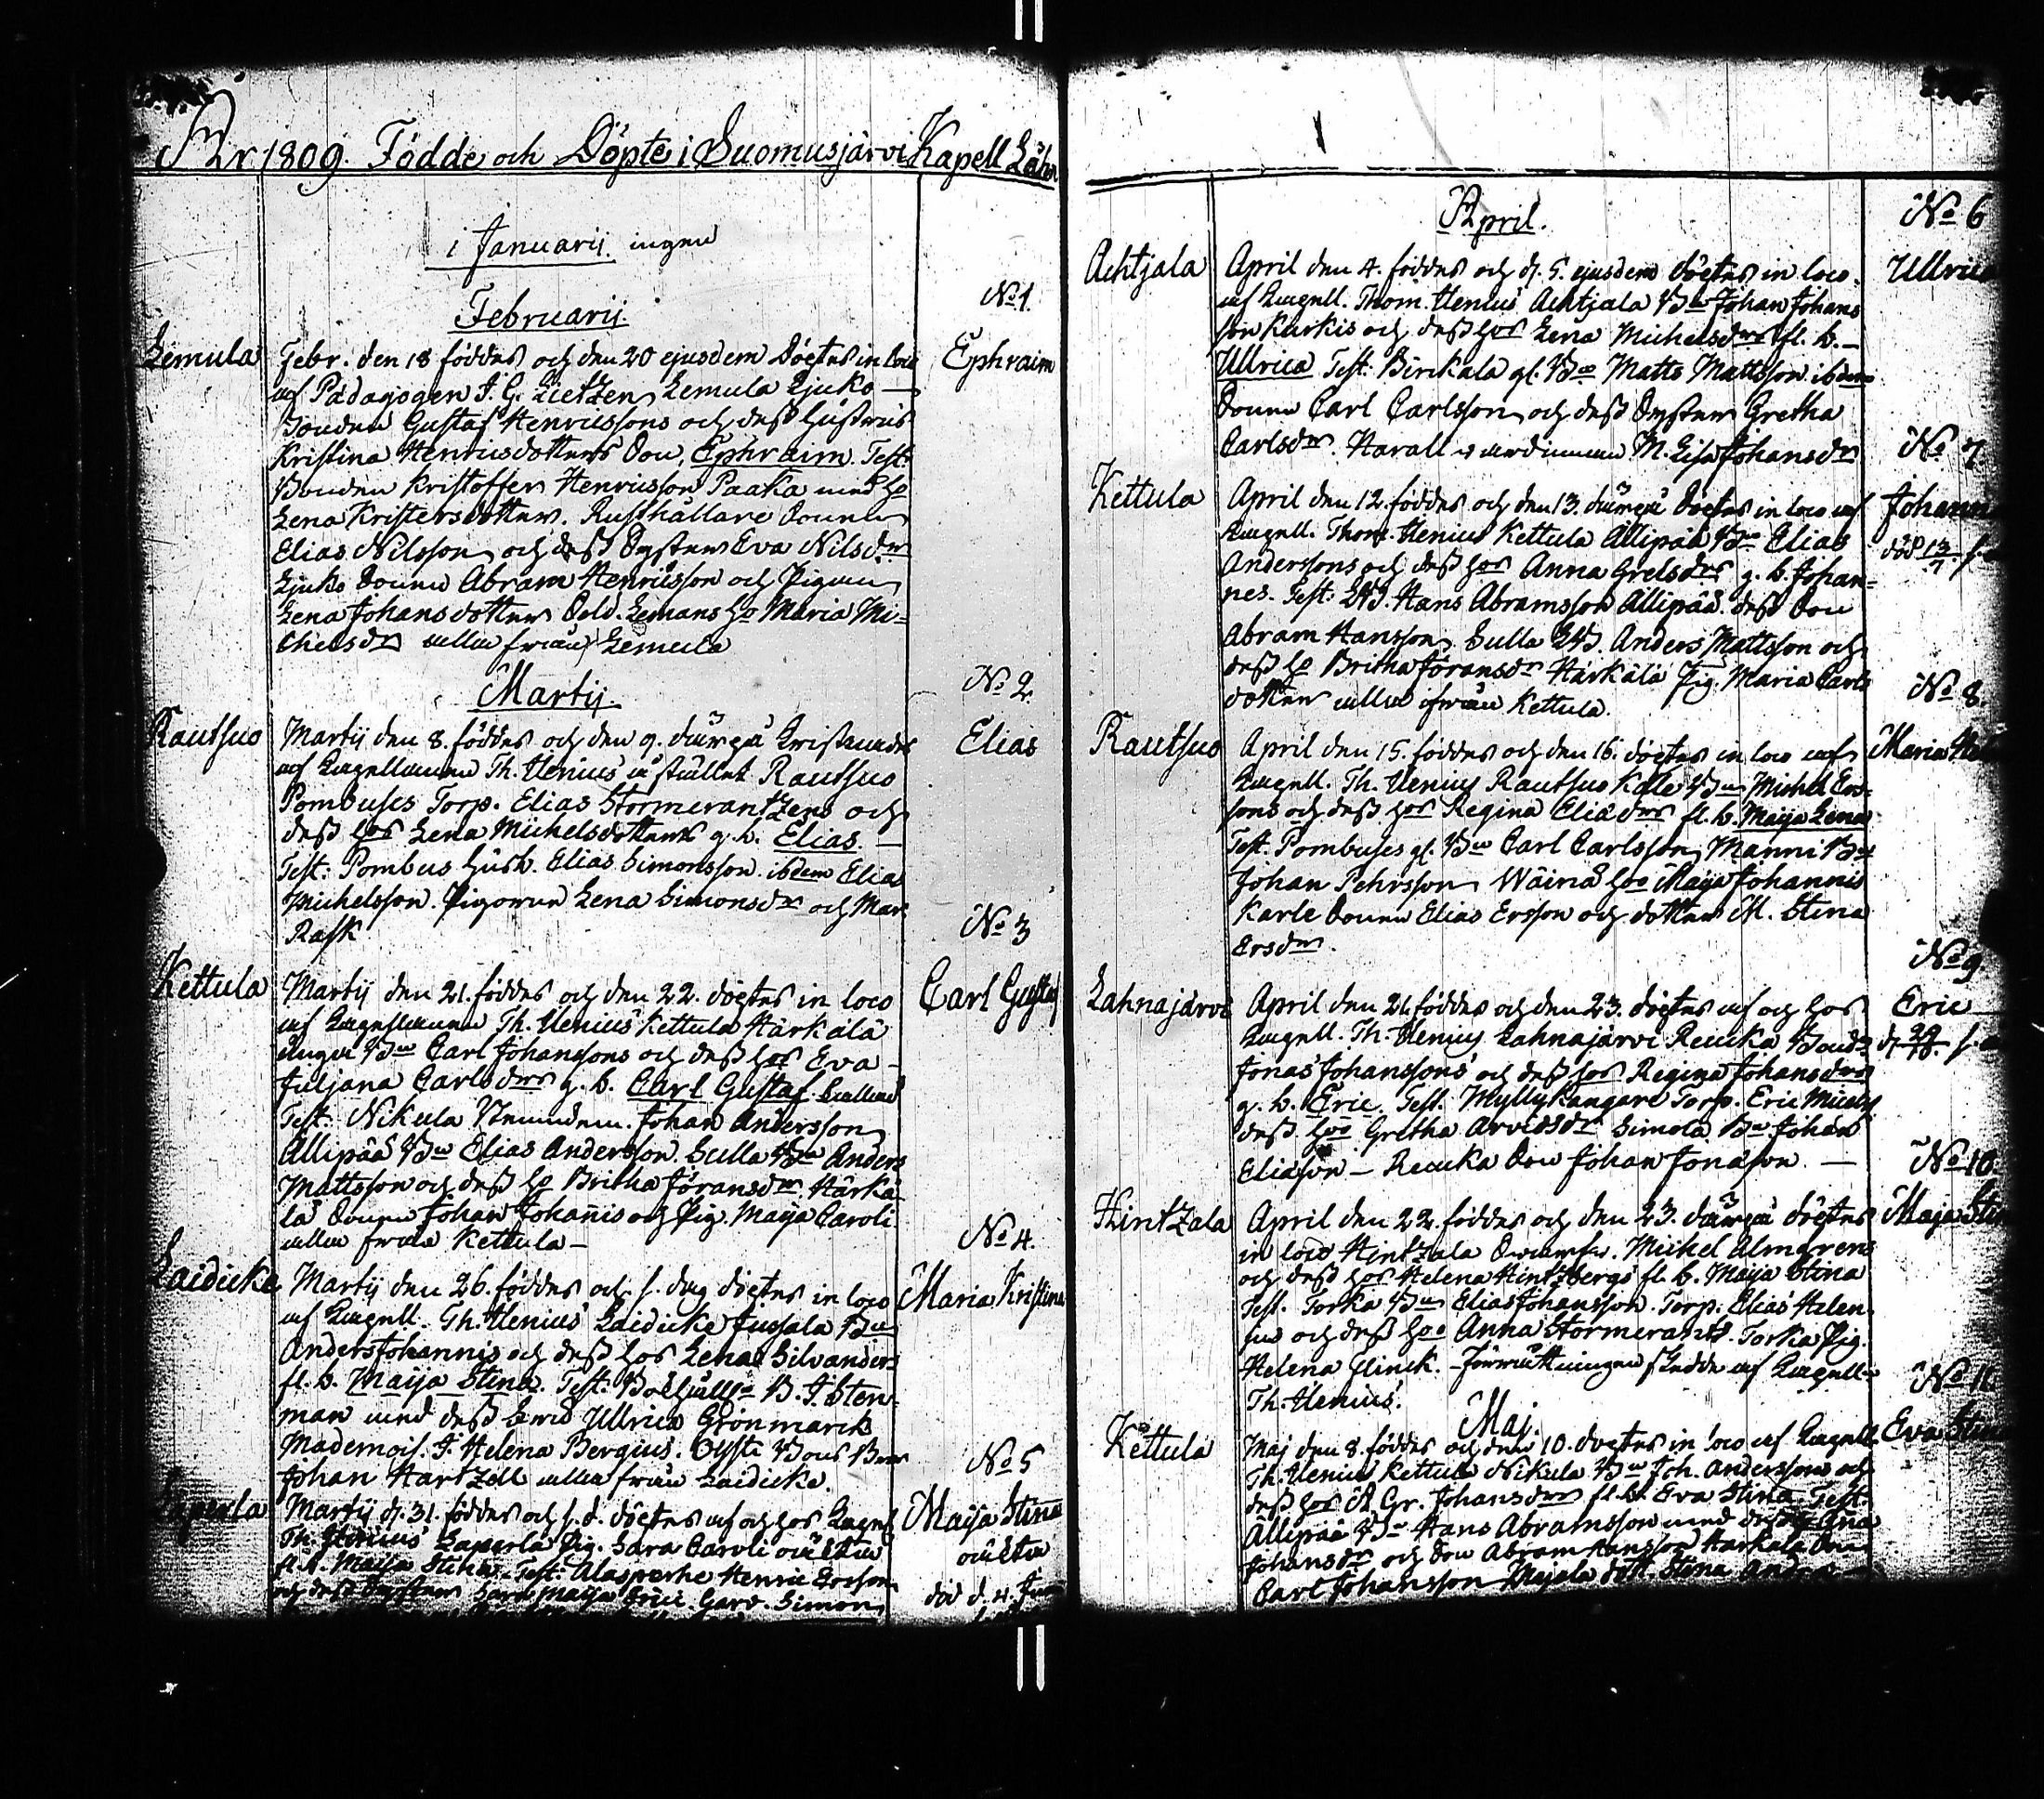 År 1809. Födde och Döpte i Suomusjärvi Kapell
i Januarij. ingen
Februarij
No 1.
Lemula
Febr. den 18 föddes och den 20 ejusdem Döptes in loco
Ephraim
af Pädagogen J. G. Zietzen Lemula Ljuko
Bonden Gustaf Henricssons och dess hustrus
Kristina Henricsdotters Son, Ephraim. Test:
Bonden Kristoffer Henricsson Paaka med h:o
Lena Kristersdotter. Rusthållare Sonen
Elias Nilsson och dess Syster Eva Nilsd:r
Ljuko Sonen Abram Henricsson och Pigan
Lena Johansdotter Sold. Lemans h:o Maria Mi=
chelsd:r alla från Lemula
Martij.
No 2.
Rautsuo
Martij den 8. föddes och den 9. därpå Kristnades
Elias
af Capellanen Th. Ilenius i stället Rautsuo
Pombuses Torp. Elias Stormerantzens och
dess h:os Lena Michelsdotters g. b. Elias.
Test: Pombus Elias Simonsson. ibdem Elia
Michelsson. Pigorna Lena Simonsd:r och Mar.
Rask
No 3
Kettula
Martij den 21. föddes och den 22. döptes in loco
Carl Gustaf
af Capellanen Th. Ilenius Kettula Härkälä
unga B:n Carl Johanssons och dess h:os Eva
Juljana Carlsd:rs g. b. Carl Gustaf kallad
Test: Nikula Johan Andersson
Ällipää B:n Elias Andersson. Sulla B:n Anders
Mattsson och dess h:o Britha Göransd:r Härkä-
lä Sonen Johan Johannis och Pig. Maija Caroli
alla från Kettula
No 4.
Laidicke
Martij den 26. föddes och s. dag döptes in loco
Maria Kristina
af Capell. Th. Ilenius Laidicke Jussala B:n
Anders Johannis och dess h:os Lena Silvanders
fl. b. Maija Stina. Test: B. J. Sten-
man med dess Ullrica Grönmarck
Mademois. J. Helena Bergius.
Johan Hartzell alla från Laidicke.
No 5
Laperla
Martij d. 31. föddes och s. d. döptes af och hos Capell
Maija Stina
Th. Ilenius Laperla Pig. Sara Caroli oäckta
oäckta
fl. b. Maija Stina. Test: Alasperhe Henric Ersson
och dess Syster Sara Maija Eric. Simon
död d. 4.
April.
No 6
Achtjala
April den 4. föddes och d. 5. ejusdem döptes in loco.
Ullrica
af Capell. Thom. Ilenius Achtjala B:n Johan Johans
son Kurkis och dess h:os Lena Michelsd:rs fl. b.
Ullrica Test: Birckala gl. B:n Matts Mattsson ibdem
Sonen Carl Carlsson och dess Syster Gretha
Carlsd:r. Harall värdinnan M. Lisa Johansd:r
No 7
Kettula
April den 12. föddes och den 13. därpå döptes in loco af
Johann
Capell. Thom. Ilenius Kettula Ällipää B:n Elias
död 13/7
Anderssons och dess h:os Anna Grelsd:rs g. b. Johan=
nes. Test: Hans Abramsson Ällipää. dess Son
Abram Hansson Sulla Anders Mattsson och
dess h:o Britha Göransd:r Härkälä Pig. Maria Carls
dotter alla från Kettula.
No 8
Rautsuo
April den 15. föddes och den 16. döptes in loco af
Maria
Capell. Th. Ilenius Rautsuo Kalle B:n Michel Ers-
sons och dess h:os Regina Eliæd:rs fl. b. Maija Lena
Test: Pombuses gl. B:n Carl Carlsson Manni B:n
Johan Pehrsson Wäinä h:o Maija Johannis
Karle Sonen Elias Ersson och dotter M. Stina
Ersd:r.
No 9
Lahnajärvi
April den 21. föddes och den 23. döptes af och hos
Eric
Capell. Th. Ilenius Lahnajärvi Reucka Bond:
Jonas Johanssons och dess h:os Regina Johansd:rs
g. b. Eric. Test: Myllykangare Torp. Eric
dess h:o Gretha Arvidsd:r Simola B:n Johan
Eliæson - Reucka Son Johan Jonasson. -
No 10.
Hintzala
April den 22. föddes och den 23. därpå döptes
Maja Stin
in loco Hintzala Michel Almgrens
och dess h:os Helena Hintzbergs fl. b. Maija Stina
Test. Torka B:n Elias Johansson. Torp. Elias Helen
ius och dess h:o Anna Stormerants. Torka Pig.
Helena Glinck. - Förrättningen skedde af Capell.
Th. Ilenius.
No 11
Maj.
Kettula
Maj den 8. föddes och den 10. döptes in loco af Capell.
Eva Stin
Th. Ilenius Kettula Nikula B:n Joh. Anderssons och
dess h:os A. Gr. Johansd:rs fl. b. Eva Stina. Test:
Ällipää B:n Hans Abramsson med dess h:o Ana
Johansd:r och Son Abram Hansson Härkälä Son
Carl Johansson Majala dott. Stina